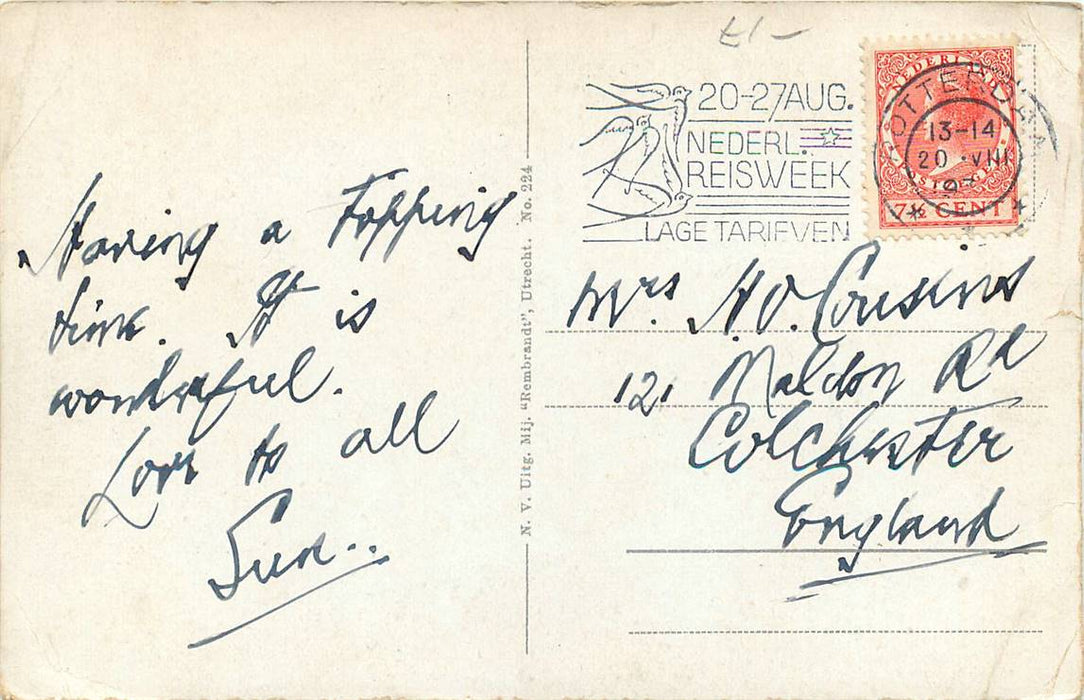 £1-
Having a topping
time. It is
wonderful.
Love to all
Sue..
N. V. Uitg. Mij. "Rembrandt", Utrecht. No. 224
20-27 AUG.
NEDERL.
REISWEEK
LAGE TARIEVEN
NEDERLAND
POSTZEGEL
7½ CENT
ROTTERDAM
13-14
20 VIII
Mrs. H. O. Cousins
121 Maldon Rd
Colchester
England